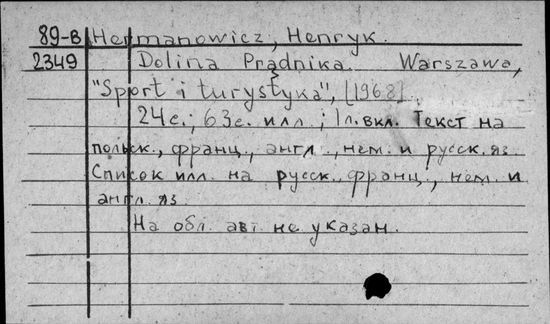 89-В Hermanowicz, Henryk.
2349 Dolina Prądnika. Warszawa,
"Sport i turystyka", [1968].
24с.; 63с. илл.; 1л. вкл. Текст на
польск., франц., англ., нем. и русск. яз.
Список илл. на русск., франц., нем. и
англ. яз.
На обл. авт. не указан.